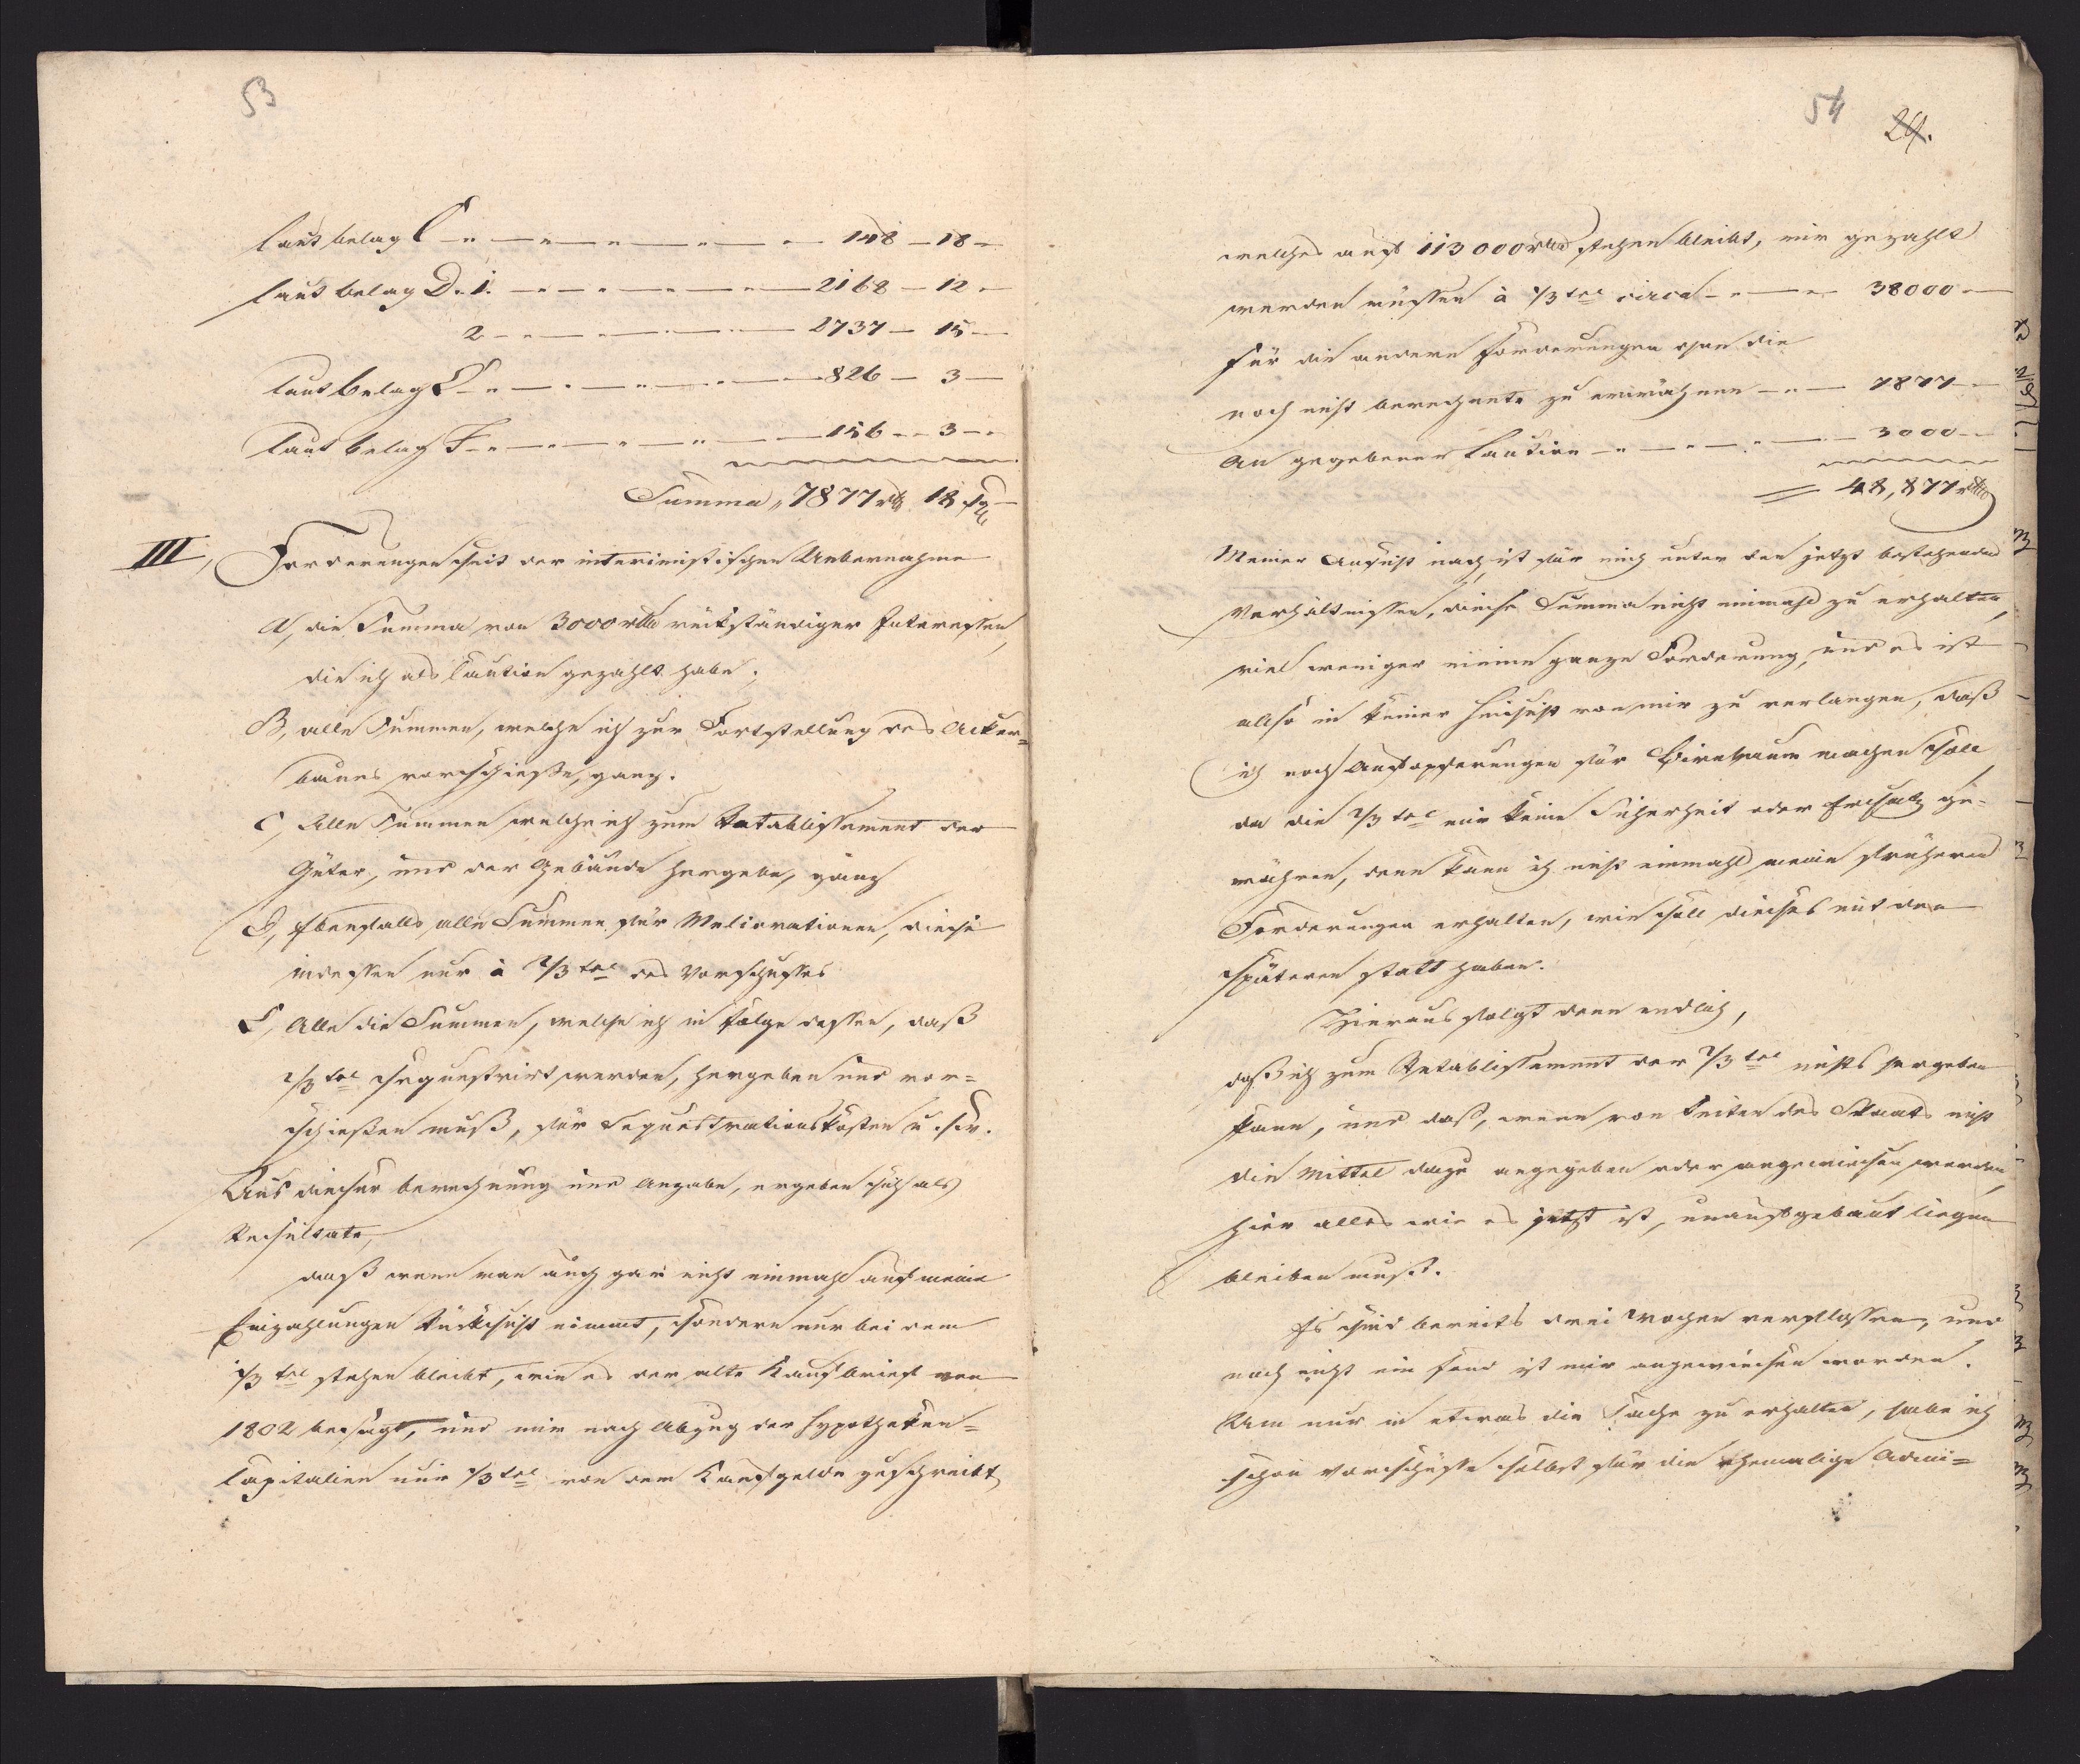 53
laut belag C - " - " - " - " - 148 - 18 -
laut belag D. 1. - " - " - " - 2168 - 12 -
2 - " - " - " - 2737 - 15 -
laut belag E - " - " - " - 826 - 3 -
laut belag F - " - " - " - 156 - 3 -
Summa " 7877 rth 18 sgl
III, Forderungen seit der interimistischen Uebernahme
A, die Summa von 3000 rthl rückständiger Interessen,
die ich als Caution gezahlt habe;
B, alle Summen, welche ich zur Fortstellung des Acker=
baues vorschieße, ganz.
C, Alle Summen welche ich zum Retablissement der
Güter, und der Gebäude hergebe, ganz
D, Ebenfalls alle Summen für Meliorationen, diese
indessen nur à 2/3 tel des Vorschusses
E, Alle die Summen, welche ich in Folge dessen, daß
2/3 tel sequestrirt werden, hergeben und vor=
schießen muß, für Sequestrationskosten u.s.w.
Aus dieser berechnung und Angabe, ergeben sich als
Resultate,
daß wenn man auch gar nicht einmahl auf meine
Einzahlungen Rücksicht nimmt, sondern nur bei dem
1/3 tel stehen bleibt, wie es der alte Kaufbrief von
1802 besagt, und mir nach Abzug der Hypotheken=
Capitalien nur 1/3 tel von dem Kaufgelde zuschreibt
54
24.
welches auf 113000 rthl stehen bleibt, mir gezahlt
werden müssen à 1/3 tel circa - " - 38000 -
für die andern Forderungen ohne die
noch nicht berechnete zu erwähnen - " - 7877 -
An gegebener Caution - " - " - " - 3000 -
= 48,877 rthl
Meiner Ansicht nach, ist für mich unter den jetzt bestehenden
Verhältnissen, diese Summa nicht einmahl zu erhalten,
viel weniger meine ganze Forderung, und es ist
also in keiner Hinsicht von mir zu verlangen, daß
ich noch Aufopferungen für Birnbaum machen soll
da die 2/3 tel mir keine Sicherheit oder Ersatz ge=
währen, denn kann ich nicht einmahl meine früheren
Forderungen erhalten, wie soll dieses mit den
späteren statt haben.
Hieraus folgt denn endlich,
daß ich zum Retablissement der 2/3 tel nichts hergeben
kann, und daß, wenn von Seiten des Staats nicht
die Mittel dazu angegeben oder angewiesen werden,
hier alles wie es jetzt ist, unaufgebaut liegen
bleiben muß.
Es sind bereits drei Wochen verflossen, und
noch nicht ein Fond ist mir angewiesen worden.
Um nur in etwas die Sache zu erhalten, habe ich
schon Vorschüsse selbst für die ehemalige Admi=